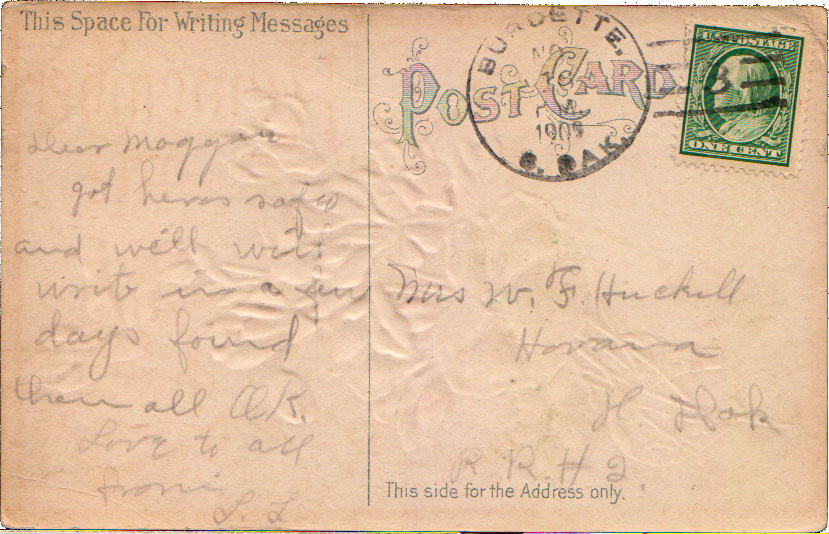 This Space For Writing Messages
POST CARD
BURDETTE,
NO
1909
S. DAK.
U.S. POSTAGE
ONE CENT
Dear Maggie
got heras safe
and well will
write in a few
days found
them all OK.
Love to all
from
L. L
Mrs W. F. Huckell
Havana
N. Dak
R. R. # 2
This side for the Address only.